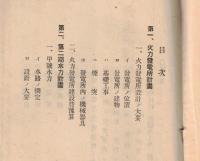 目次
第一、火力發電所計畫
一、火力發電所設計ノ大要
イ 發電所ノ位置
ロ 發電所ノ建物
ハ 基礎工事
ニ 煙突
ホ 發電所內ノ機械器具
二、火力發電所建設費豫算
第二、第二期水力計畫
一、甲號水力
イ 水路ノ選定
ロ 設計ノ大要